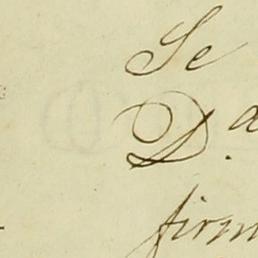 Se
D.
firm